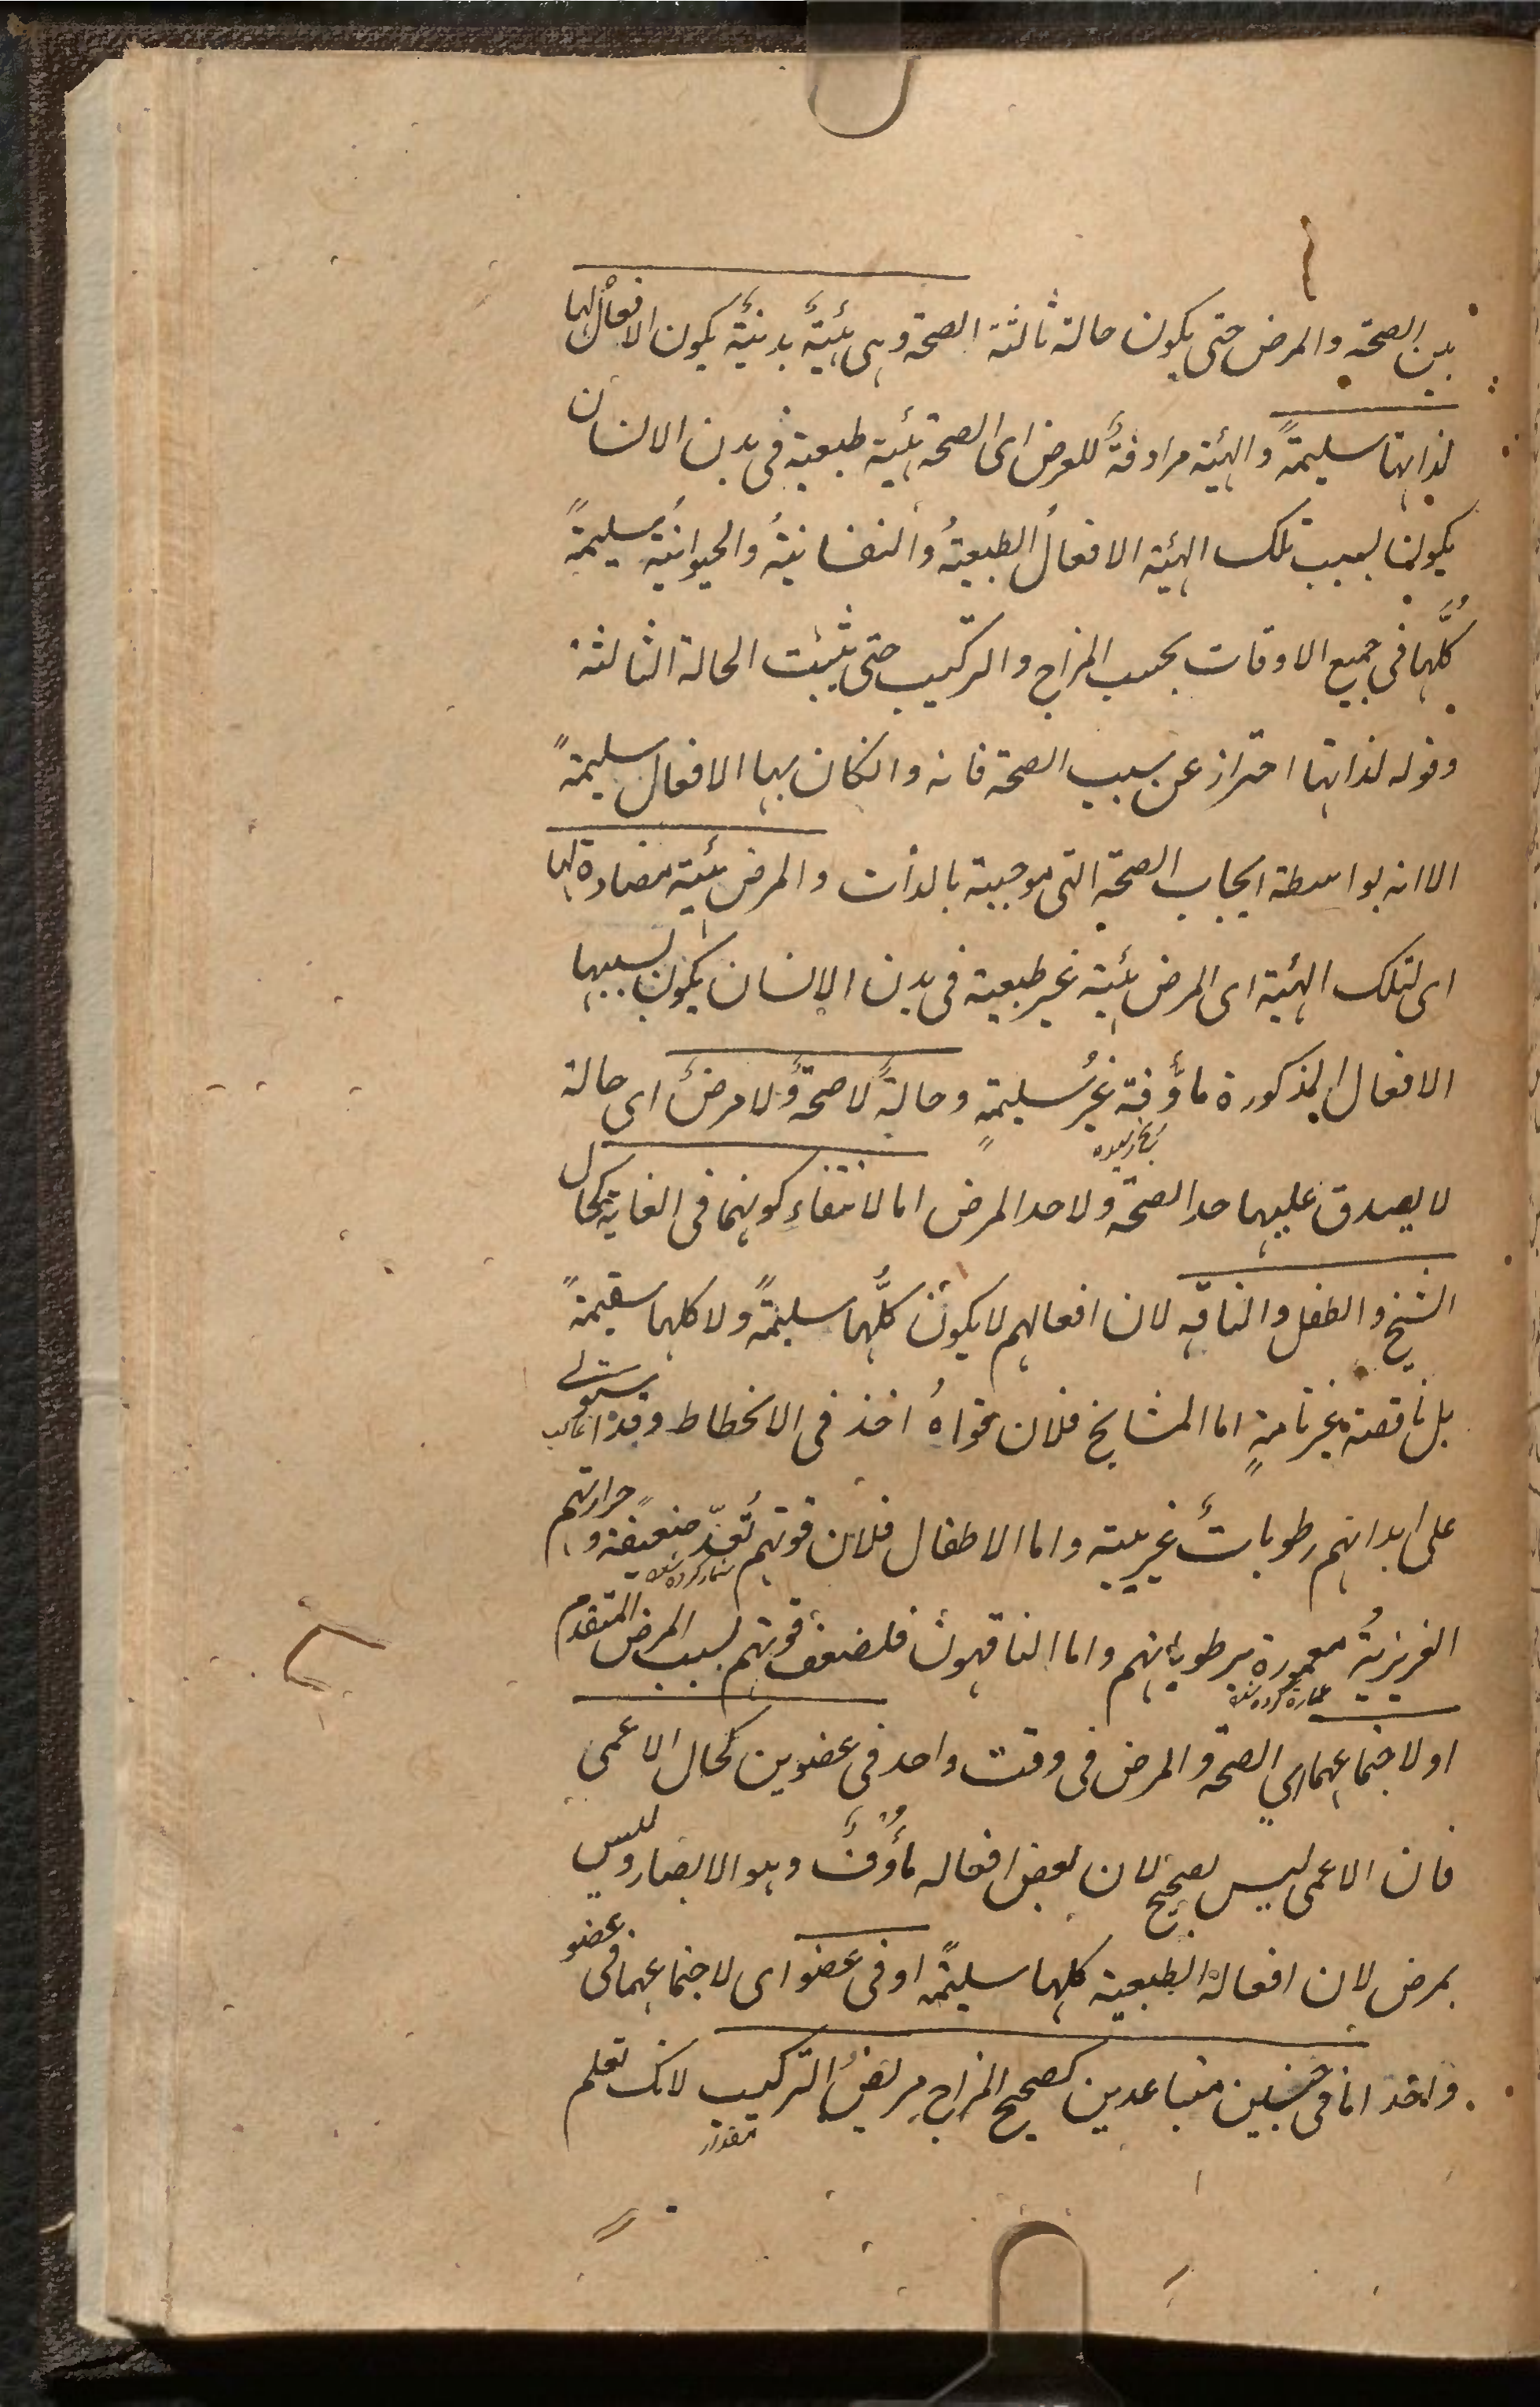 بين الصحة والمرض حتى يكون حالة ثالثة الصحة وهى هيئةٌ بدنيةٌ يكون الافعالُ بها
لذاتها سليمةً والهيئة مرادفةٌ للعرض اى الصحة هيئية طبعية فى بدن الانسان
يكون بسبب تلك الهيئة الافعالُ الطبعيةُ والنفسانيةُ والحيوانيةُ سليمةً
كلُّها فى جميع الاوقات بحسب المزاج والتركيب حتى يثبت الحالة الثالثة
وقوله لذاتها احتراز عن سبب الصحة فانه وانكان بها الافعال سليمةً
الا انه بواسطة ايجاب الصحة التى موجبية بالذات والمرض هيئية مضادة لها
اى لتلك الهيئية اى المرض هيئية غير طبعية فى بدن الانسان يكون بسببها
الافعال المذكورة ماؤفة غيرُ سليمةٍ وحالةٌ لا صحةٌ ولا مرضٌ اى حالة
لا يصدق عليها حد الصحة ولا حد المرض اما لانتفاءِ كونهما فى الغاية كحال
الشيخ والطفل والناقه لان افعالهم لا يكون كلُّها سليمةً ولا كلها سقيمةً
بل ناقصة غير تامةٍ اما المشايخ فلان قواهُ اخذ فى الانحطاط وقد استولى
غالب
على ابدانهم رطوباتٌ غريبية واما الاطفال فلان قوتهم تُعدّ ضعيفة وحرارتهم
شمار كرده شد
الغريزيةُ معمورة برطوباتهم واما الناقهون فلضعف قوتهم بسبب المرض المتقدم
عمارة كرده شد
او لاجتماعهما اي الصحة والمرض فى وقت واحد فى عضوين كحال الاعمى
فان الاعمى ليس بصحيح لان بعض افعاله مأوُفٌ وهو الابصار وليس
بمرض لان افعاله الطبعية كلها سليمةً او فى عضو اى لاجتماعهما فى عضو
واحد اما فى جنسين متباعدين كصحيح المزاج مريضُ التركيب لانك تعلم